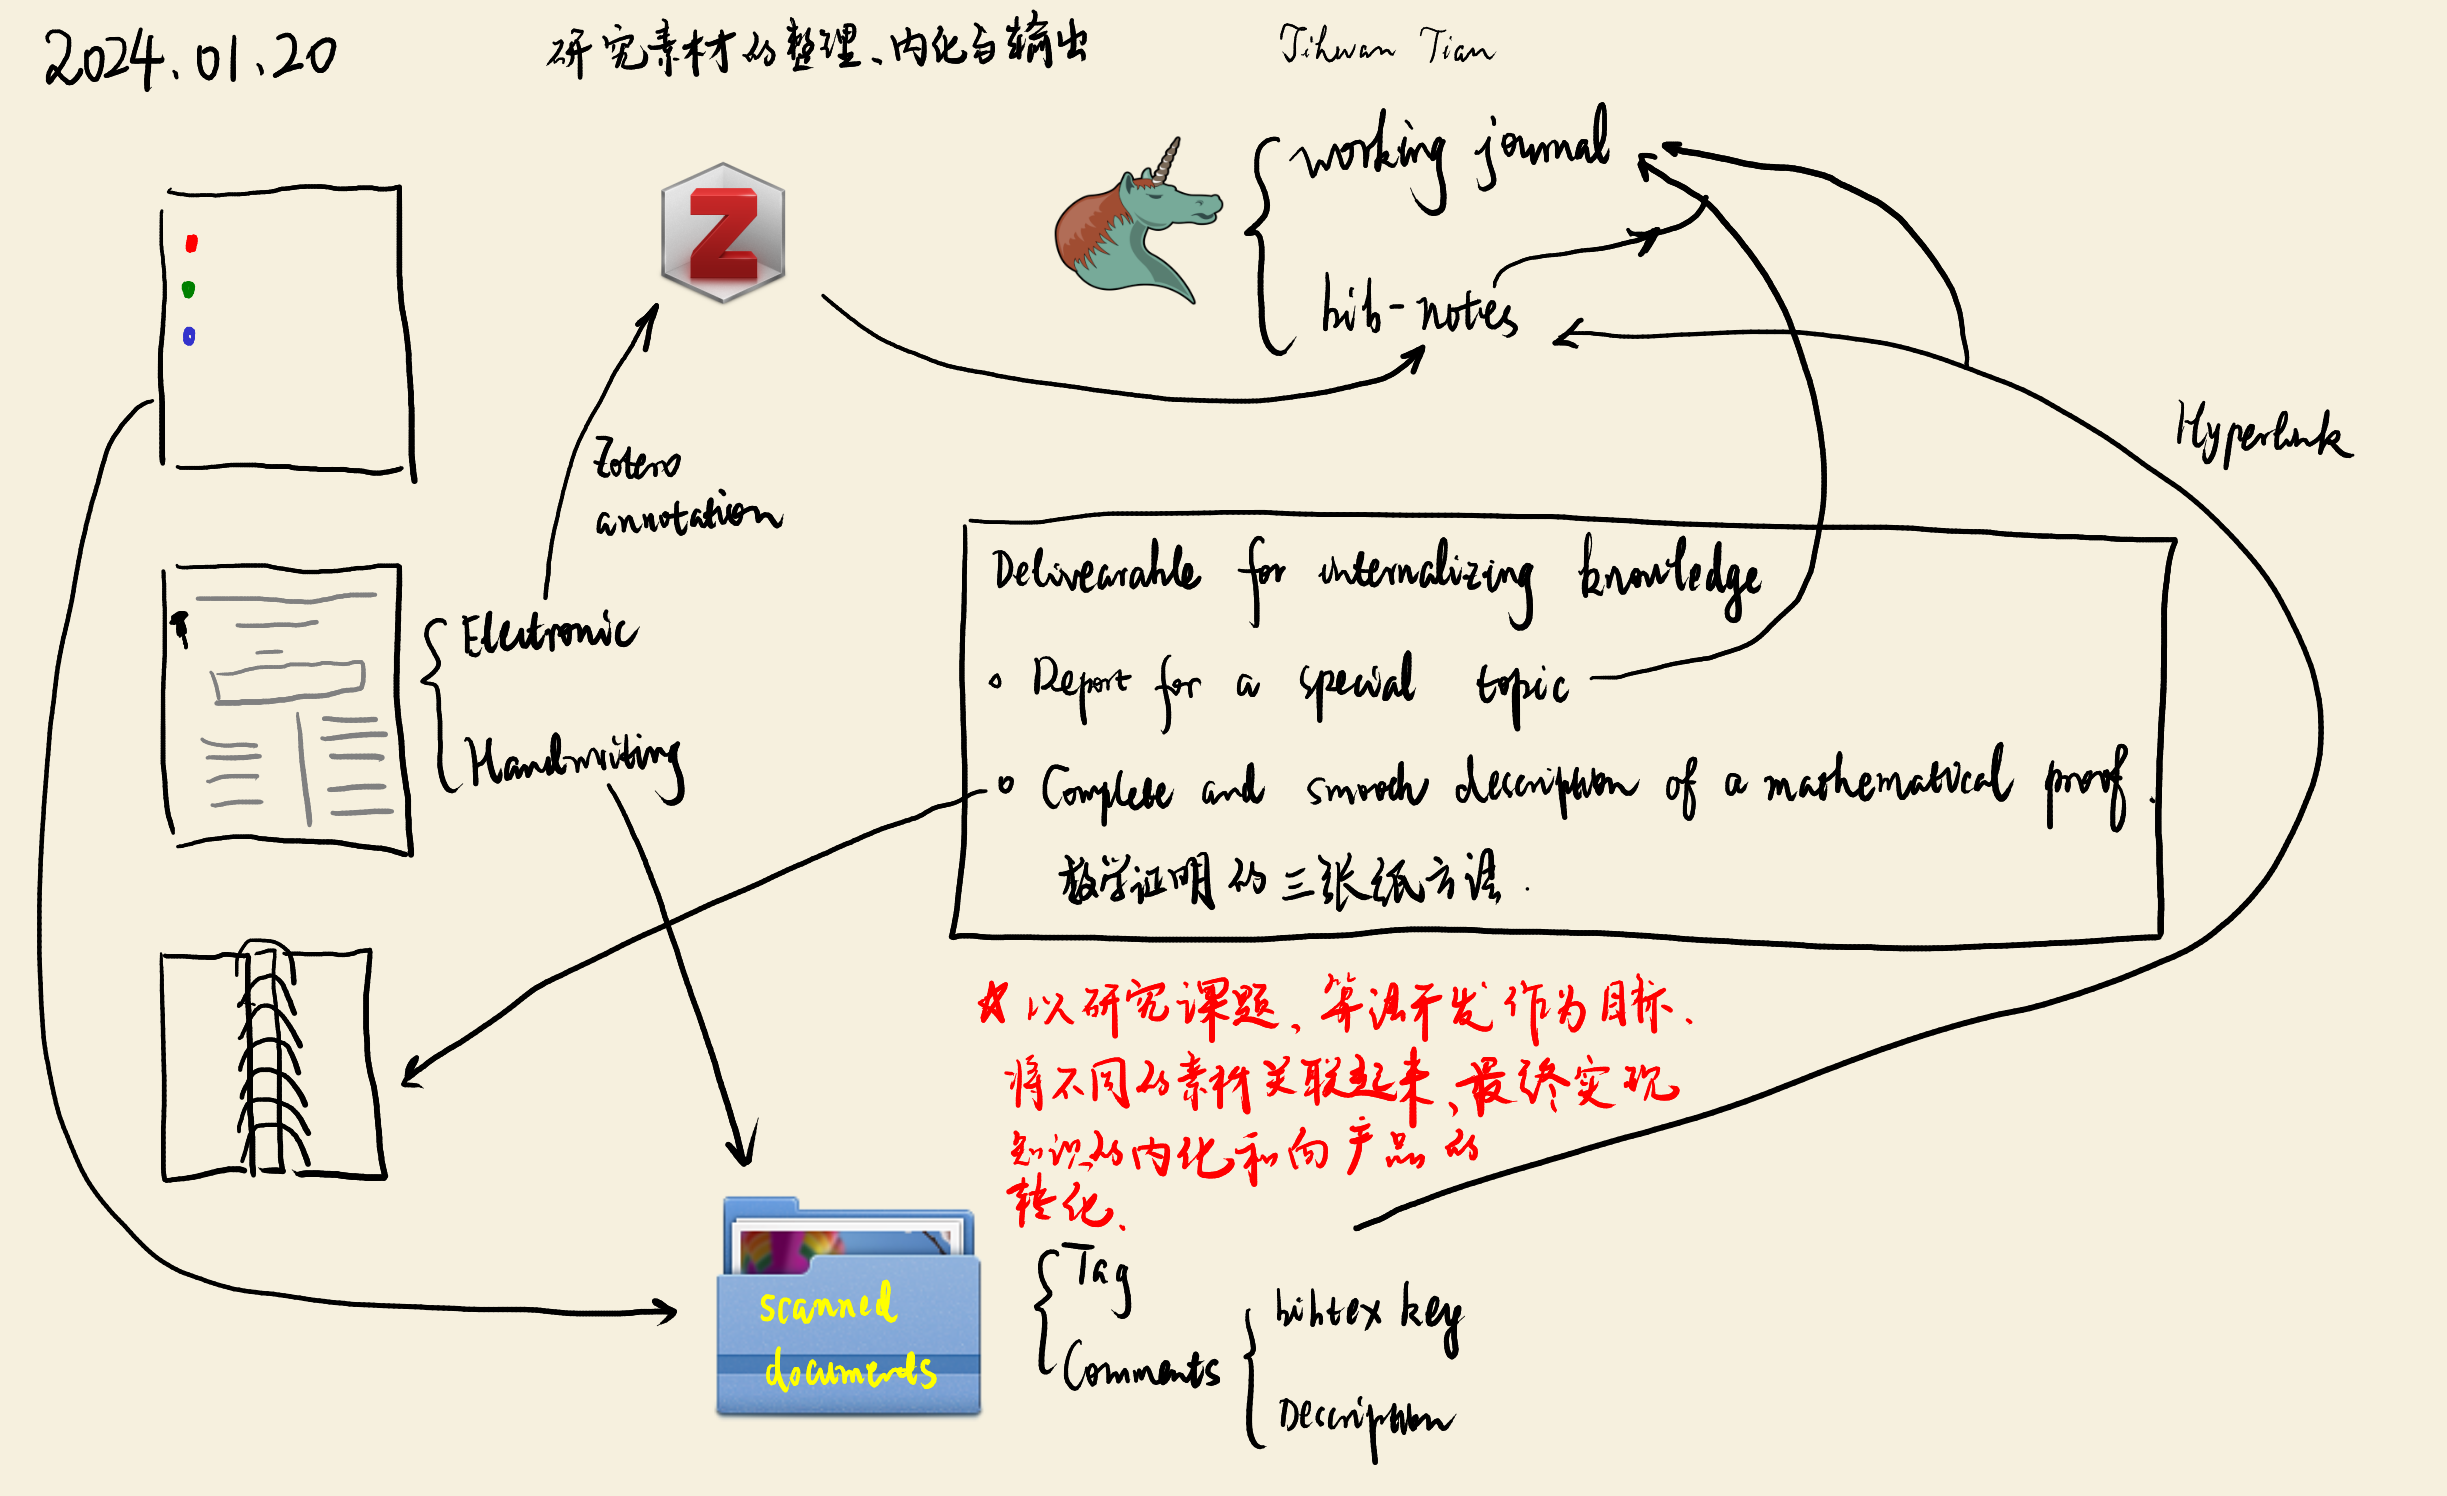 2024.01.20
研究素材的整理、内化与输出
Jihuan Tian
Z
working journal
bib-notes
Zotero
annotation
Hyperlink
Electronic
Handwriting
Delivearable for internalizing knowledge
Report for a special topic
Complete and smooth description of a mathematical proof.
数学证明的三张纸方法.
☆以研究课题、算法开发作为目标、
将不同的素材关联起来,最终实现
知识的内化和向产品的
转化、
scanned
documents
Tag
Comments
bibtex key
Description